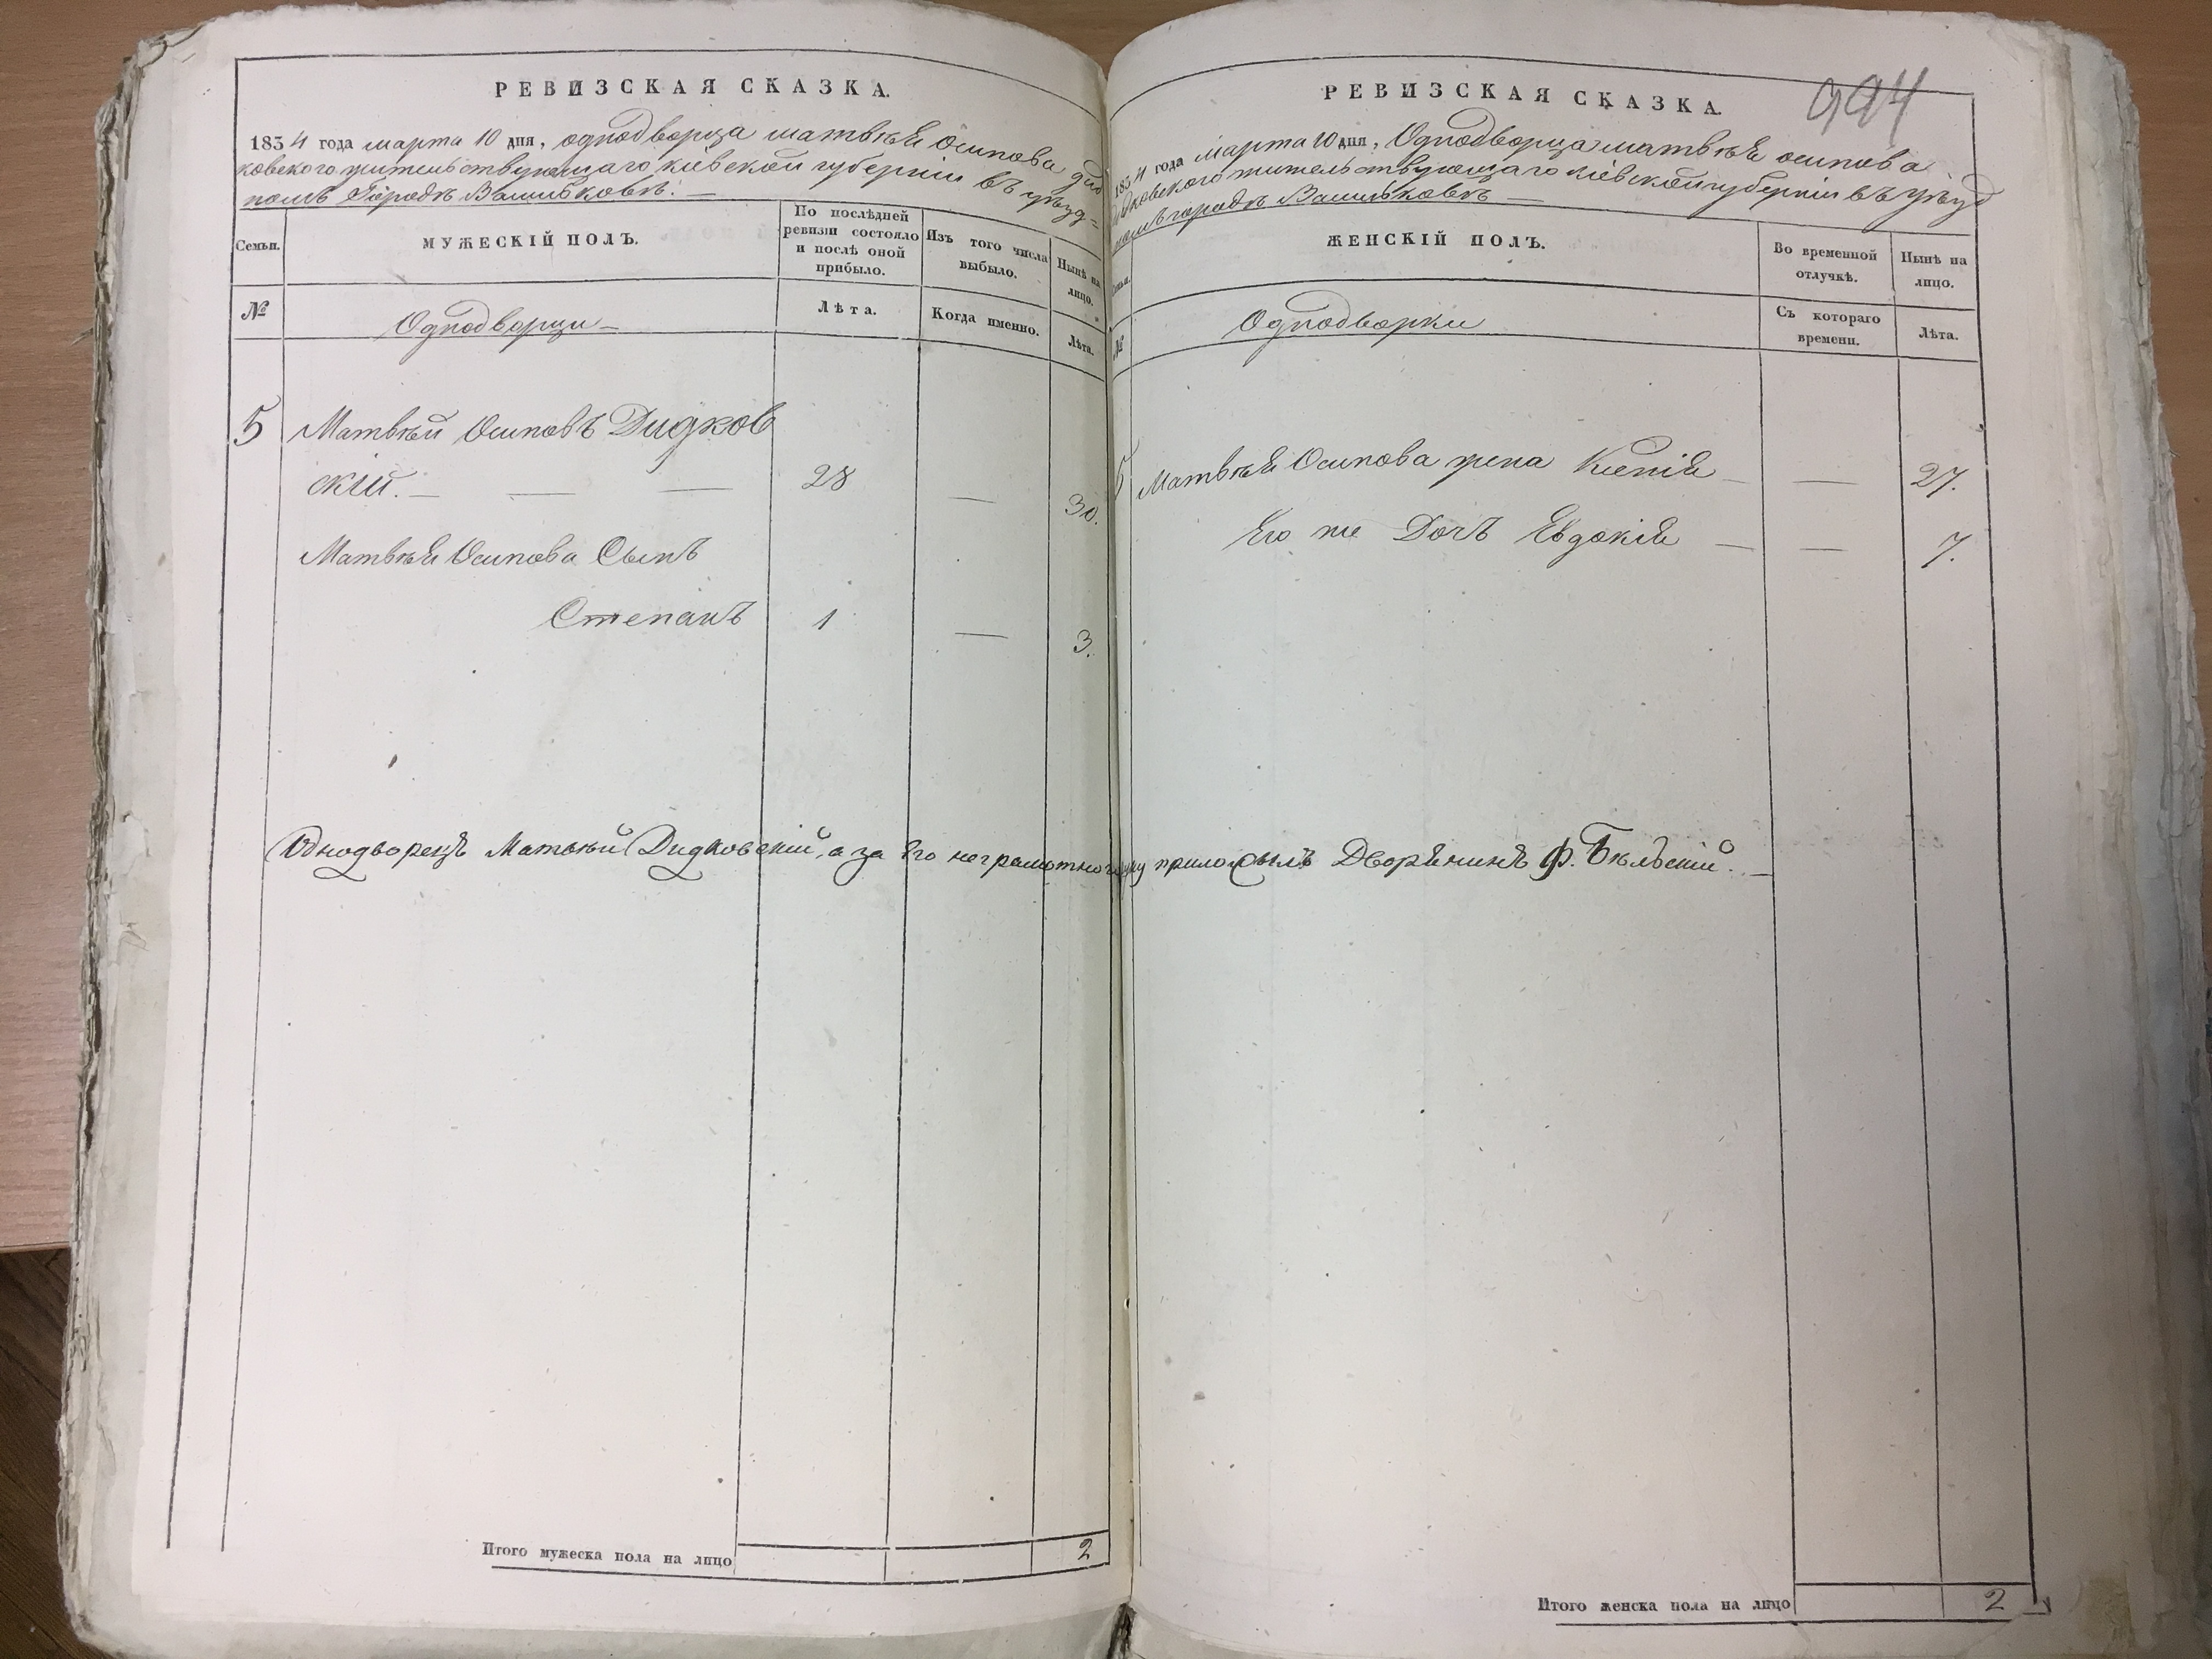 РЕВИЗСКАЯ СКАЗКА.
1834 года марта 10 дня, однодворца матвѣя Осипова Дид
ковского жительствующаго кіевской губерніи въ уѣзд-
номъ Городѣ Василковѣ: —
Семьи.
МУЖЕСКІЙ ПОЛЪ.
По послѣдней ревизіи состояло и послѣ оной прибыло.
Изъ того числа выбыло.
Нынѣ на лицо.
№
Однодворци —
Лѣта.
Когда именно.
Лѣта.
5 Матвѣй Осиповъ Дидков
скій. — — — 28 — 30.
Матвѣя Осипова Сынъ
Степанъ 1 — 3.
Итого мужеска пола на лицо 2
РЕВИЗСКАЯ СКАЗКА.
994
1834 года марта 10 дня, Однодворца матвѣя осипова
Дидковского жительствующаго кіевской губерніи въ уѣзд
номъ городѣ Василковѣ —
Семьи.
ЖЕНСКІЙ ПОЛЪ.
Во временной отлучкѣ.
Нынѣ на лицо.
№
Однодворки
Съ котораго времени.
Лѣта.
5 Матвѣя Осипова жена Ксенія — — 27.
Его же Дочъ Евдокія — — 7.
Однодворецъ Матвѣй Дидковскій, а за его неграмотного руку приложылъ Дворѣнинъ Ф. Бѣлъскій. —
Итого женска пола на лицо 2